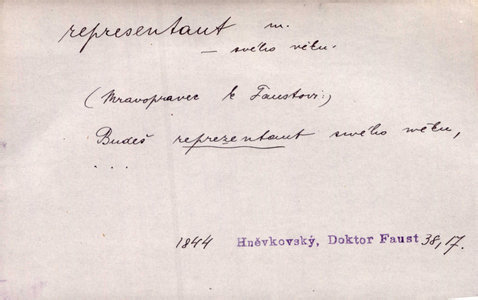 representant m.
— svého věku.
(Mravopravec k Faustovi:)
Budeš reprezentant swého wěku,
...
1844 Hněvkovský, Doktor Faust 38, 17.